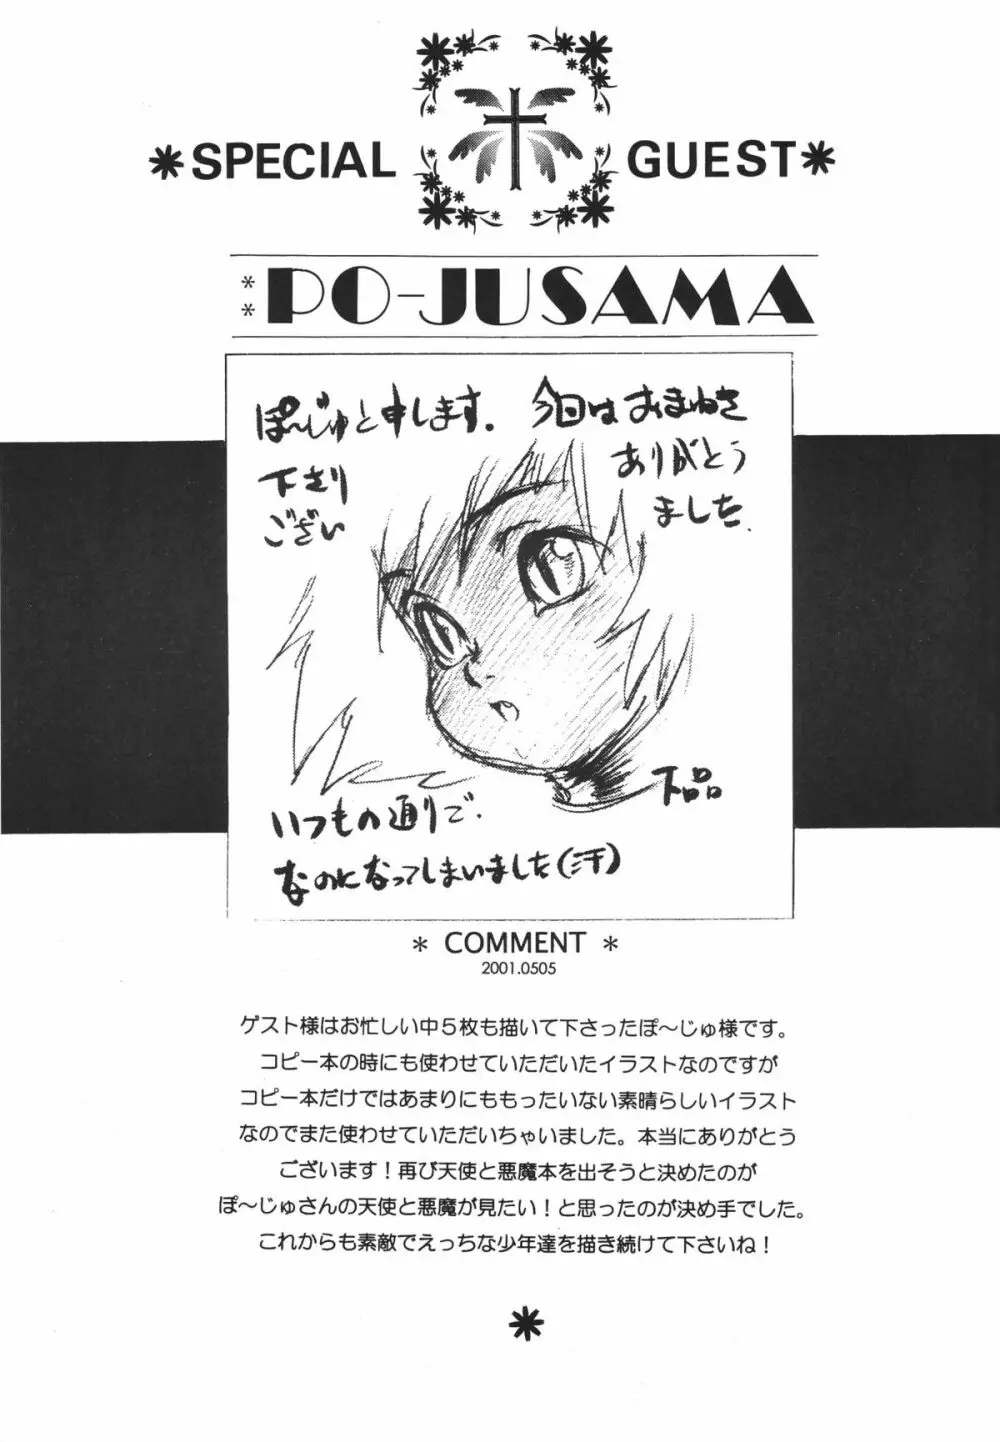 *SPECIAL GUEST*
**PO-JUSAMA
ぽ〜じゅと申します。今回はおまねき
下さり
ござい
ありがとう
ました。
下品
いつもの通りで、
なのになってしまいました(汗)
* COMMENT *
2001.0505
ゲスト様はお忙しい中5枚も描いて下さったぽ〜じゅ様です。
コピー本の時にも使わせていただいたイラストなのですが
コピー本だけではあまりにももったいない素晴らしいイラスト
なのでまた使わせていただいちゃいました。本当にありがとう
ございます!再び天使と悪魔本を出そうと決めたのが
ぽ〜じゅさんの天使と悪魔が見たい!と思ったのが決め手でした。
これからも素敵でえっちな少年達を描き続けて下さいね!